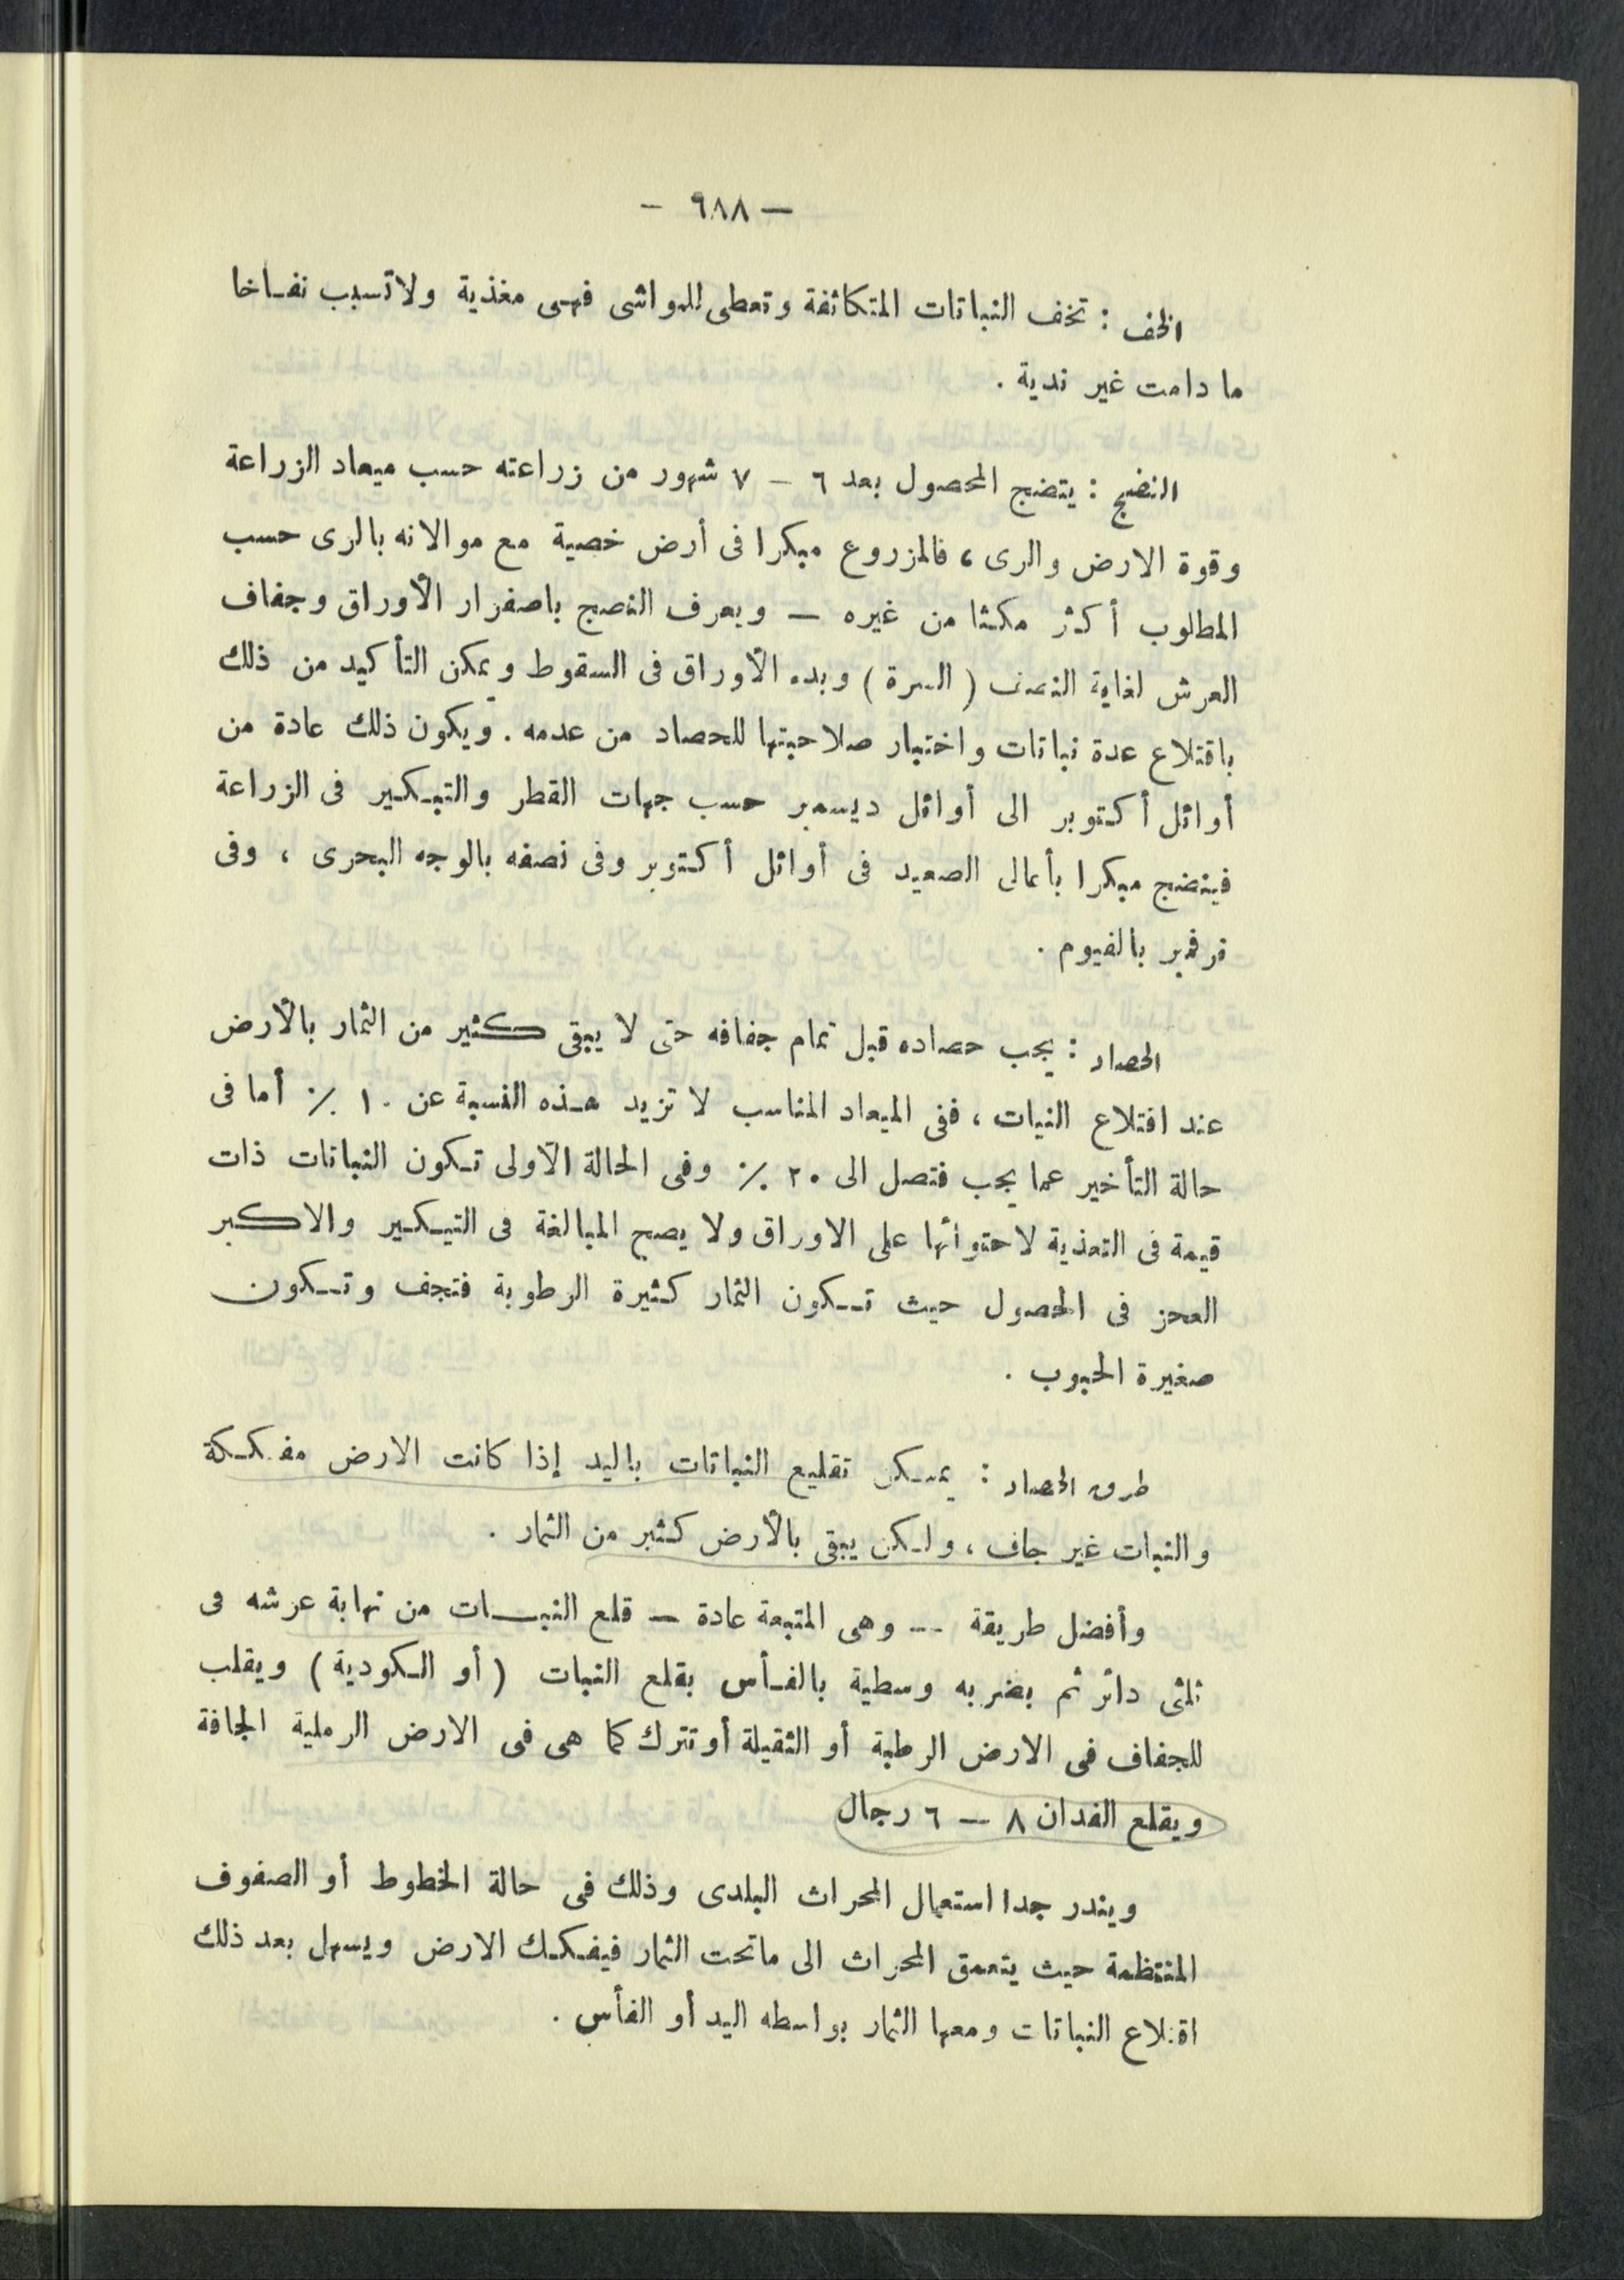 — ٩٨٨ —
الخف : تخف النباتات المتكاثفة وتعطى للمواشى فهى مغذية ولا تسبب نفاخا
ما دامت غير ندية .
النضج : يتضج المحصول بعد ٦ — ٧ شهور من زراعته حسب ميعاد الزراعة
وقوة الارض والرى ، فالمزروع مبكرا فى أرض خصبة مع موالاته بالرى حسب
المطلوب أكثر مكثا من غيره — ويعرف النضج باصفرار الأوراق وجفاف
العرش لغاية النصف ( السرة ) وبدء الأوراق فى السقوط ويمكن التأكيد من ذلك
باقتلاع عدة نباتات واختبار صلاحيتها للحصاد من عدمه . ويكون ذلك عادة من
أوائل أكتوبر الى أوائل ديسمبر حسب جهات القطر والتبكير فى الزراعة
فينضج مبكرا بأعالى الصعيد فى أوائل أكتوبر وفى نصفه بالوجه البحرى ، وفى
نوفمبر بالفيوم .
الحصاد : يجب حصاده قبل تمام جفافه حتى لا يبقى كثير من الثمار بالأرض
عند اقتلاع النبات ، ففى الميعاد المناسب لا تزيد هذه النسبة عن ١٠ ٪ أما فى
حالة التأخير عما يجب فتصل الى ٢٠ ٪ وفى الحالة الأولى تكون النباتات ذات
قيمة فى التغذية لاحتوائها على الاوراق ولا يصح المبالغة فى التبكير والا كبر
العجز فى المحصول حيث تكون الثمار كثيرة الرطوبة فتجف وتكون
صغيرة الحبوب .
طرق الحصاد : يمكن تقليع النباتات باليد إذا كانت الارض مفككة
والنبات غير جاف ، ولكن يبقى بالأرض كثير من الثمار .
وأفضل طريقة — وهى المتبعة عادة — قلع النبات من نهاية عرشه فى
ثلثى دائر ثم بضربه وسطية بالفأس بقلع النبات ( أو الكودية ) ويقلب
للجفاف فى الارض الرطبة أو الثقيلة أو تترك كما هى فى الارض الرملية الجافة
ويقلع الفدان ٨ — ٦ رجال
ويندر جدا استعمال المحراث البلدى وذلك فى حالة الخطوط أو الصفوف
المنتظمة حيث يتعمق المحراث الى ما تحت الثمار فيفكك الارض ويسهل بعد ذلك
اقتلاع النباتات ومعها الثمار بواسطه اليد أو الفأس .